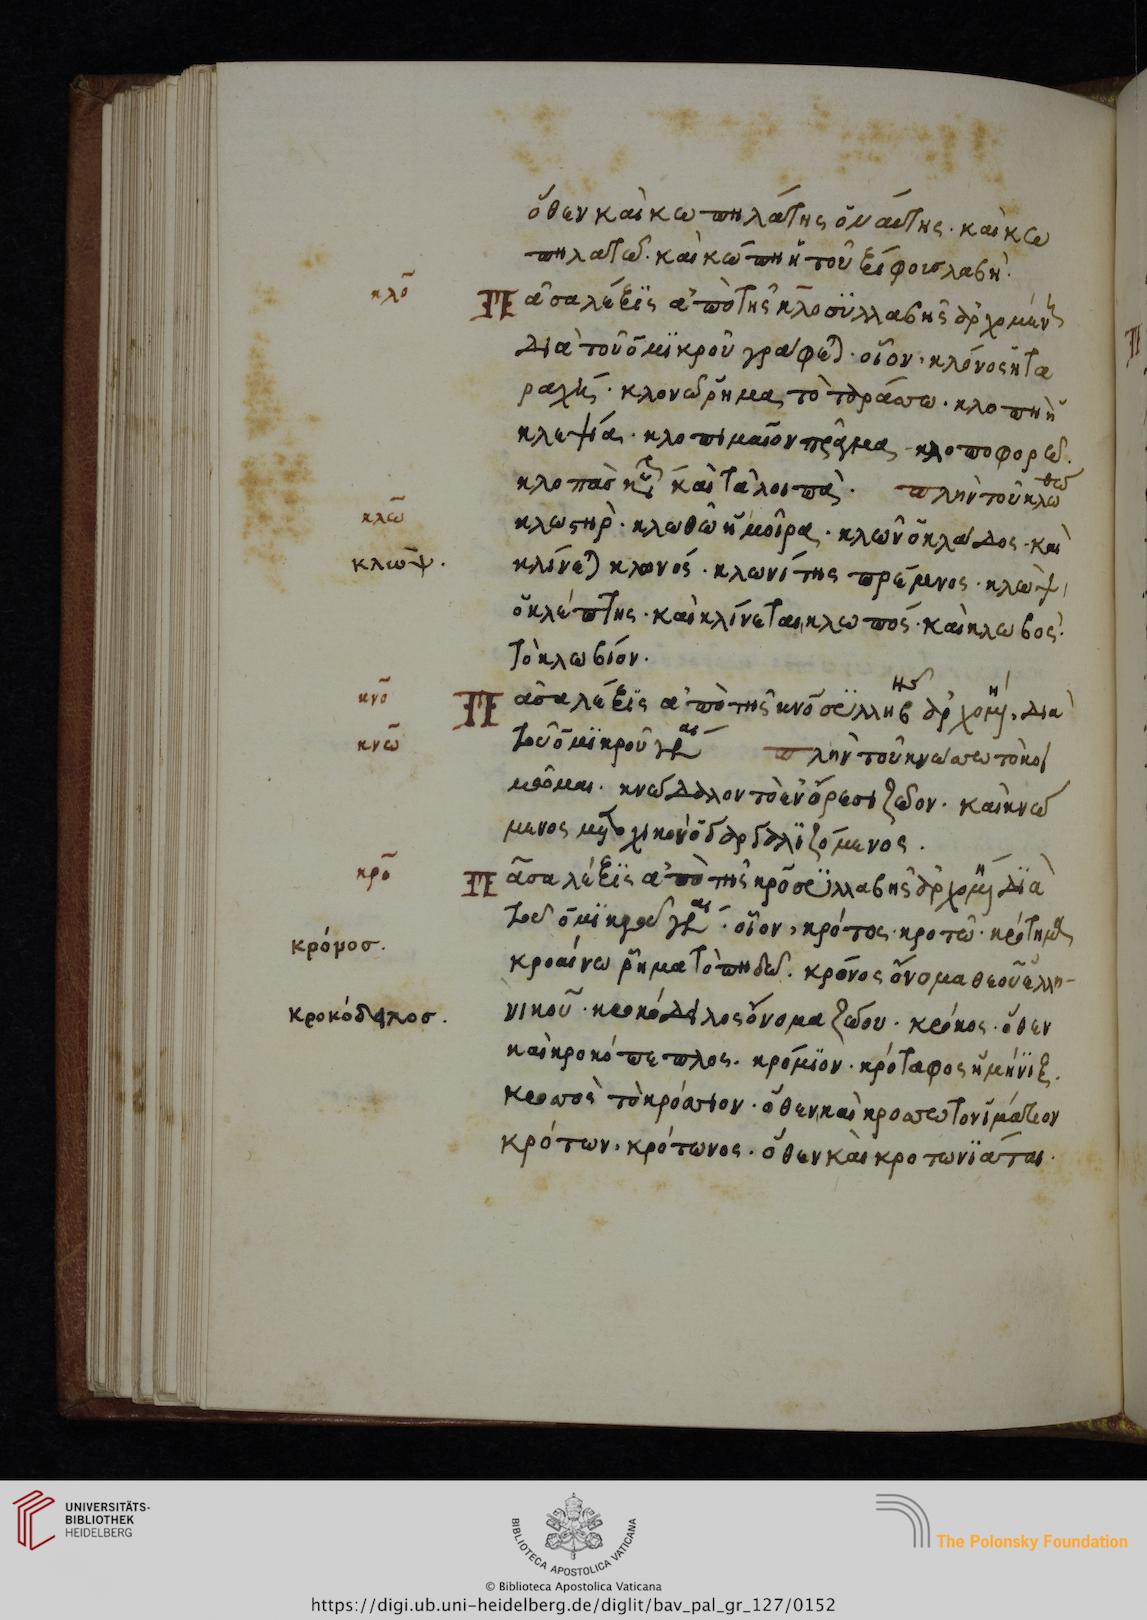 ὅθεν καὶ κωπηλάτης ὁ ναύτης· καὶ κω
πηλατῶ· καὶ κώπη ἡ τοῦ ξίφους λαβή·
κλο
Πᾶσα λέξις ἀπὸ τῆς κλο συλλαβῆς ἀρχομένη
διὰ τοῦ ὀ μικροῦ γράφεται· οἷον, κλόνος ἡ τα
ραχή· κλονῶ ῥῆμα, τὸ ταράττω· κλοπὴ ἡ
κλεψία· κλοπιμαῖον πρᾶγμα, κλοποφορῶ.
καὶ τὰ λοιπά· πλὴν τοῦ κλώθω
κλω
κλωστήρ· κλωθὼ ἡ μοῖρα· κλὼν ὁ κλάδος· καὶ
κλώψ.
κλίνεται κλωνός· κλωνίτης πρέμνος· κλὼψ,
ὁ κλέπτης· καὶ κλίνεται κλωπός· καὶ κλωβός·
τὸ κλωβίον.
κνο
Πᾶσα λέξις ἀπὸ τῆς κνο συλλαβῆς ἀρχομένη, διὰ
κνω
τοῦ ὀ μικροῦ γράφεται πλὴν τοῦ κνώσσω τὸ κοι
μῶμαι· κνώδαλον τὸ ἐν ὄρεσι ζῶον· καὶ κνώ
μενος
κρο
Πᾶσα λέξις ἀπὸ τῆς κρο συλλαβῆς ἀρχομένη διὰ
τοῦ ὀ μικροῦ γράφεται· οἷον, κρότος· κροτῶ·
κρόνοσ.
κροαίνω ῥῆμα τὸ πηδῶ. κρόνος ὄνομα θεοῦ ἑλλη-
κροκόδειλοσ.
νικοῦ· κροκόδειλος ὄνομα ζώου· κρόκος· ὅθεν
καὶ κροκόπεπλος· κρόμιον· κρόταφος ἡ μήνιξ.
κροσσὸς τὸ κρόσσιον· ὅθεν καὶ κροσσωτὸν ἱμάτιον
κρότων, κρότωνος· ὅθεν καὶ κροτωνιάται·
UNIVERSITÄTS-
BIBLIOTHEK
HEIDELBERG
BIBLIOTECA APOSTOLICA VATICANA
The Polonsky Foundation
© Biblioteca Apostolica Vaticana
https://digi.ub.uni-heidelberg.de/diglit/bav_pal_gr_127/0152